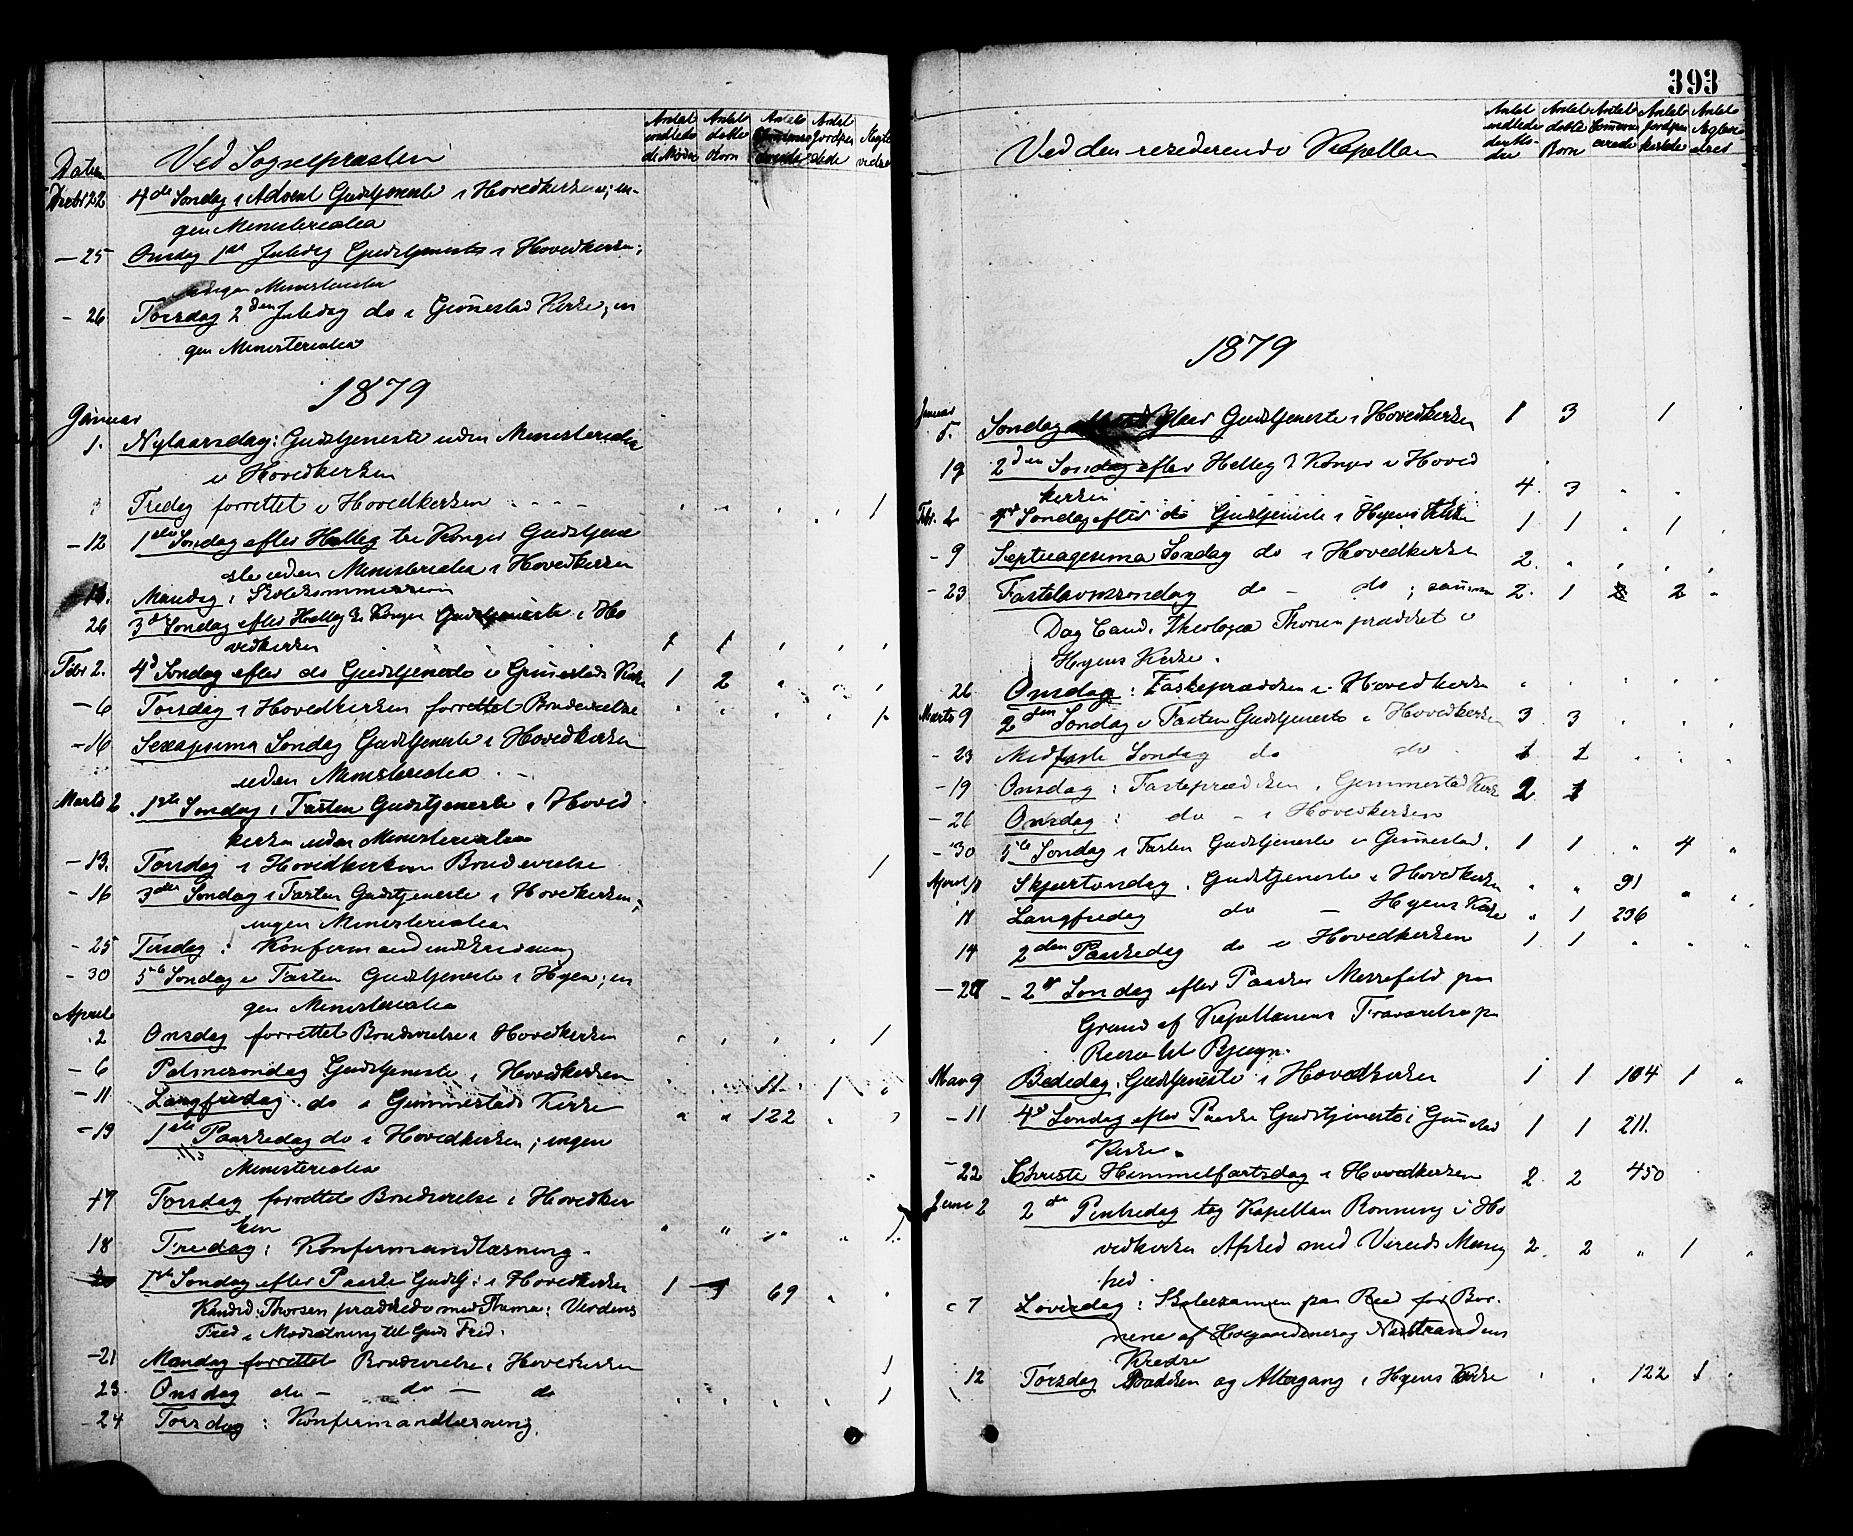 393
Datum Ved Sognepræsten Antal Antal døbte Børn Antal Antal
Decbr 22 4de Søndag i Advent Gudstjeneste i Hovedkirken; in-
gen Ministerialia
- 25 Onsdag 1ste Juledag Gudstjeneste i Hovedkirken;
ingen Ministerialia
- 26 Torsdag 2den Juledag do i Gimmestad Kirke; in
gen Ministerialia
1879
Januar
1. Nytaarsdag: Gudstjeneste uden Ministerialia
i Hovedkirken
Fredag forrettet i Hovedkirken 1
- 12 1ste Søndag efter Hellig tre Konger Gudstjene
ste uden Ministerialia i Hovedkirken
13. Mandag: Skolekommission
26 3de Søndag efter Hellig 3 Konger Gudstjeneste i Ho
vedkirken 1 1
Febr 2. 4d Søndag efter do Gudstjeneste i Gimmestads Kirke 1 2
- 6 Torsdag i Hovedkirken forrettet Brudevielse 1
- 16 Sexagesima Søndag Gudstjeneste i Hovedkirken
uden Ministerialia
Marts 2 1ste Søndag i Fasten Gudstjeneste i Hoved
kirken uden Ministerialia
- 13. Torsdag i Hovedkirken Brudevielse 1
- 16 3die Søndag i Fasten Gudstjeneste i Hovedkirken;
ingen Ministerialia
- 25 Tirsdag: Konfirmandindskrivning
- 30 5te Søndag i Fasten Gudstjeneste i Hyen; in
gen Ministerialia
April
2 Onsdag forrettet Brudevielse i Hovedkirken 1
- 6 Palmesøndag Gudstjeneste i Hovedkirken 11 1
- 11 Langfredag do i Gimmestads Kirke 122
- 13 1ste Paaskedag do i Hovedkirken; ingen
Ministerialia
17 Torsdag forrettet Brudevielse i Hovedkir
ken 1
18 Fredag: Konfirmandlæsning
20 1ste Søndag efter Paaske Gudstj: i Hovedkirken 1 1 69
Kandid: Thorsen prædikede med Thema: Verdens
Fred i Modsætning til Guds Fred.
- 21 Mandag forrettet Brudevielse i Hovedkirken 1
23. Onsdag do - do - do 1
- 24 Torsdag: Konfirmandlæsning.
Ved den residerende Kapellan Antal Antal døbte Børn Antal Antal Antal
1879
Januar
5. Søndag Nytaar Gudstjeneste i Hovedkirken 1 3 1
19 2den Søndag efter Hellig 3 Konger i Hoved
kirken 4 3
Febr. 2 Søndag efter do Gudstjeneste i Hyens Kirke 1 1 1
- 9 Septuagesima Søndag do i Hovedkirken 2
- 23 Fastelavnssøndag do - do; samme 2 1 2 2
Dag Cand. Theologia Thorsen prædiket i
Hyens Kirke.
26 Onsdag: Fasteprædiken i Hovedkirken
Marts 9 2den Søndag i Fasten Gudstjeneste i Hovedkirken 3 3
- 23 Midfaste Søndag do do 1 1
- 19 Onsdag: Fasteprædiken i Gimmestad Kirke 2 1
- 26 Onsdag: do - i Hovedkirken
- 30 5te Søndag i Fasten Gudstjeneste i Gimmestad. 1 1 4
April Skjærtorsdag, Gudstjeneste i Hovedkirken 91
11 Langfredag do - Hyens Kirke 1 236
14 2den Paaskedag do i Hovedkirken 1 1
- 27 2den Søndag efter Paaske Messefald paa
Grund af Kapellanens Fravær
Reise til Bjugn.
Mai 9 Bededag, Gudstjeneste i Hovedkirken 1 1 104 1
- 11 4de Søndag efter Paaske Gudstjeneste i Gimestad
Kirke 1 1 211.
- 22 Christi Himmelfartsdag i Hovedkirken 2 2 450
Juni 2 2den Pintsedag tog Kapellan Rønning i Ho
vedkirken Afsked med Menig 2 2 1
hed.
7 Løverdag: Skoleexamen paa Reed for Bør-
nene af og
Kredse
12 Torsdag Prædiken og Altergang i Hyens Kirke 122 1